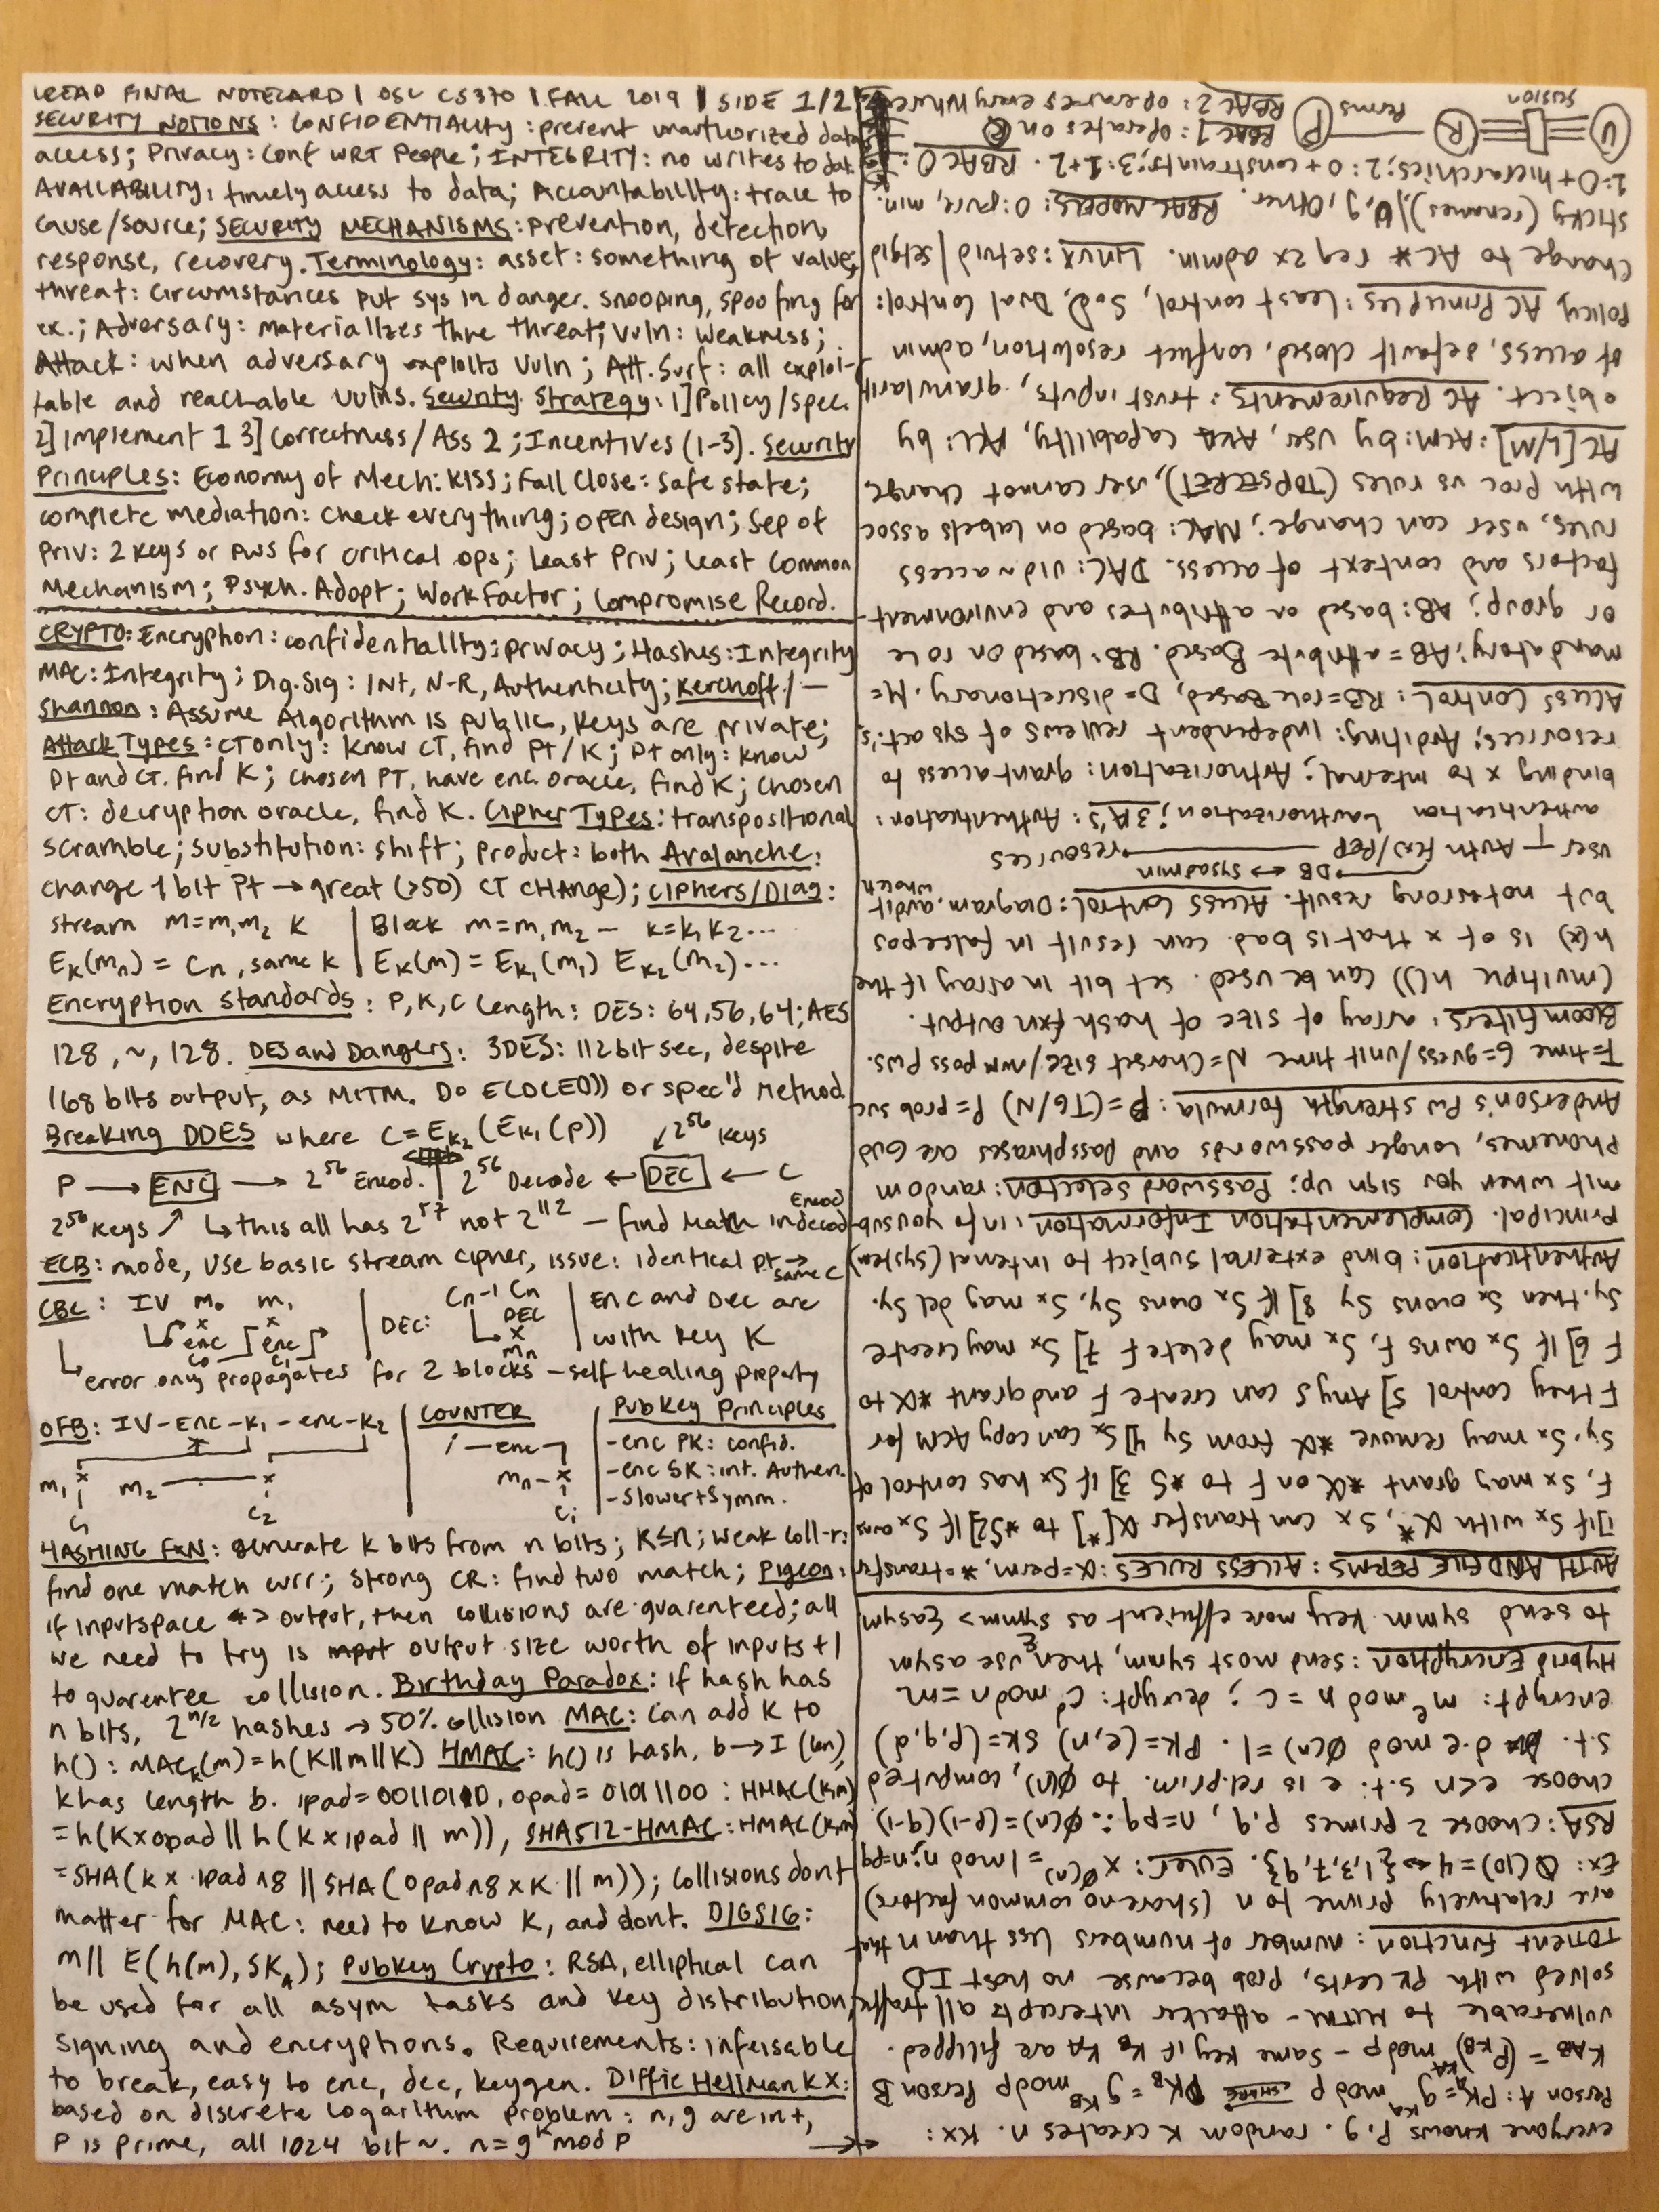 FINAL NOTECARD | OSU CS370 | FALL 2019 | SIDE 1/2
SECURITY NOTIONS: CONFIDENTIALITY: prevent unauthorized data
access; Privacy: conf WRT People; INTEGRITY: no writes to dat.
AVAILABILITY: timely access to data; Accountability: trace to
cause/source; SECURITY MECHANISMS: prevention, detection,
response, recovery. Terminology: asset: something of value;
threat: circumstances put sys in danger. snooping, spoofing for
ex.; Adversary: materializes threat; vuln: weakness;
Attack: when adversary exploits vuln; Att. Surf: all exploi-
table and reachable vulns. Security Strategy: 1] Policy/spec.
2] Implement 1 3] Correctness/Ass 2; Incentives (1-3). Security
Principles: Economy of Mech: KISS; Fail Close: safe state;
complete mediation: check everything; open design; Sep of
Priv: 2 keys or pws for critical ops; Least Priv; Least Common
Mechanism; Psych. Adopt; Work Factor; Compromise Record.
CRYPTO: Encryption: confidentiality; privacy; Hashes: Integrity
MAC: Integrity; Dig. Sig: INT, N-R, Authenticity; Kerchoff/-
Shannon: Assume Algorithm is public, keys are private;
Attack Types: CT only: know CT, find pt/k; Pt only: know
Pt and CT. find K; chosen PT, have enc oracle, find K; chosen
CT: decryption oracle, find K. Cipher Types: transpositional
scramble; substitution: shift; product: both Avalanche:
change 1 bit Pt → great (>50) CT CHANGE); Ciphers/Diag:
stream m=m₁m₂ K | Block m=m₁m₂ - k=k₁k₂...
Eₖ(mₙ) = cₙ, same k | Eₖ(m) = Eₖ₁(m₁) Eₖ₂(m₂)...
Encryption Standards: P, K, C length: DES: 64, 56, 64; AES
128, ~, 128. DES and Dangers: 3DES: 112 bit sec, despite
168 bits output, as MITM. Do E(D(E())) or spec'd method
Breaking DDES where C=Eₖ₂(Eₖ₁(p)) ↙2⁵⁶ keys
P → ENC → 2⁵⁶ Encod. | 2⁵⁶ Decode ← DEC ← C
2⁵⁶ keys ↗ ↳ this all has 2⁵⁷ not 2¹¹² - find match in Encod decod
ECB: mode, use basic stream cipher, issue: identical pt → same c
CBC: IV m₀ m₁ | DEC: Cn-1 Cn | Enc and Dec are
enc enc | DEC x | with key K
c₀ c₁ mₙ
↳ error only propagates for 2 blocks - self healing property
OFB: IV-ENC-K₁-enc-K₂ | COUNTER | PubKey Principles
i-enc | -enc PK: confid.
m₁ x m₂ x | mₙ-x | -enc SK: int. Authen.
c₁ c₂ | cᵢ | -slower+symm.
HASHING FXN: generate k bits from n bits; K≤n; weak coll-r:
find one match curr; strong CR: find two match; Pigeon:
if inputspace > output, then collisions are guarenteed; all
we need to try is output size worth of inputs +1
to guarentee collision. Birthday Paradox: if hash has
n bits, 2^n/2 hashes → 50% collision MAC: can add K to
h(): MACₖ(m)=h(K||m||K) HMAC: h() is hash, b→I (len),
k has length b. ipad=00110110, opad=01011100: HMAC(k,m)
=h(K x opad || h(k x ipad || m)), SHA512-HMAC: HMAC(k,m)
=SHA(k x ipad^8 || SHA(opad^8 x K || m)); collisions dont
matter for MAC: need to know K, and dont. DIGSIG:
m|| E(h(m), SKₐ); Pubkey Crypto: RSA, elliptical can
be used for all asym tasks and key distribution,
signing and encryptions. Requirements: infeisable
to break, easy to enc, dec, keygen. Diffie Hellman KX:
based on discrete logarithm problem: n, g are int,
P is prime, all 1024 bit ~. n=g^k mod P
everyone knows P, g. random K creates n. KX:
Person A: PKₐ=g^Kₐ mod p share PK_B=g^K_B mod p Person B
K_AB = (P_KB)^KA mod p - same key if K_B Kₐ are flipped.
vulnerable to MITM - attacker intercepts all traffic,
solved with PK certs, prob because no host ID
TOTIENT FUNCTION: number of numbers less than n that
are relatively prime to n (share no common factors)
Ex: Φ(10)=4 → {1,3,7,9}. Euler: x^Φ(n)=1 mod n; n=pq
RSA: choose 2 primes p, q, n=pq ∴ Φ(n)=(p-1)(q-1).
choose e<n s.t. e is rel. prim. to Φ(n), compute d
s.t. d·e mod Φ(n)=1. PK=(e,n) SK=(p,q,d)
encrypt: m^e mod n = c; decrypt: c^d mod n = m
Hybrid Encryption: send most symm, then use asym
to send symm key. more efficient as symm > E asym
AUTH AND FILE PERMS: ACCESS RULES: α=perm, *=transfer
1] if Sx with α*, Sx can transfer α[*] to *S 2] If Sx owns
F, Sx may grant *α on F to *S 3] if Sx has control of
Sy, Sx may remove *α from Sy 4] Sx can copy ACM for
F they control 5] Any S can create F and grant *α to
F 6] If Sx owns F, Sx may delete F 7] Sx may create
Sy, then Sx owns Sy 8] If Sx owns Sy, Sx may del Sy.
Authentication: bind external subject to internal (system)
principal. Complementation Information: info you sub-
mit when you sign up; Password selection: random
Phonemes, longer passwords and passphrases are Gud
Anderson's Pw strength formula: P=(TG/N) P=prob suc
T=time G=guess/unit time N=Charset size/num poss pws.
Bloomfilters: array of size of hash fxn output.
(multiple h()) can be used. set bit in array if the
h(x) is of x that is bad. can result in false pos
but not wrong result. Access Control: Diagram: audit whole
DB ↔ sysadmin
user - Auth F(x)/PEP → resources
authentication authorization; 3A's: Authentication:
binding x to internal; Authorization: grant access to
resources; Auditing: independent reviews of sys act's;
ACCESS CONTROL: RB=role Based, D=discretionary. M=
mandatory; AB=attribute Based. RB: based on role
or group; AB: based on attributes and environment
factors and context of access. DAC: uid~access
rules, user can change; MAC: based on labels assoc
with proc vs rules (TOPSECRET), user cannot change
AC[L/M]: ACM: by user, AKA capability, ACL: by
object. AC Requirements: trust inputs, granularity
of access, default closed, conflict resolution, admin
policy. AC Principles: Least control, SoD, Dual Control:
change to AC* req 2x admin. Linux: setuid/setgid
sticky (renames)), U, g, other. RBAC MODELS: 0: pure, min.
1: 0+hierarchies; 2: 0+constraints; 3: 1+2. RBAC 0:
RBAC 1: operates on R
RBAC 2: operates everywhere
U R P
session
Perms